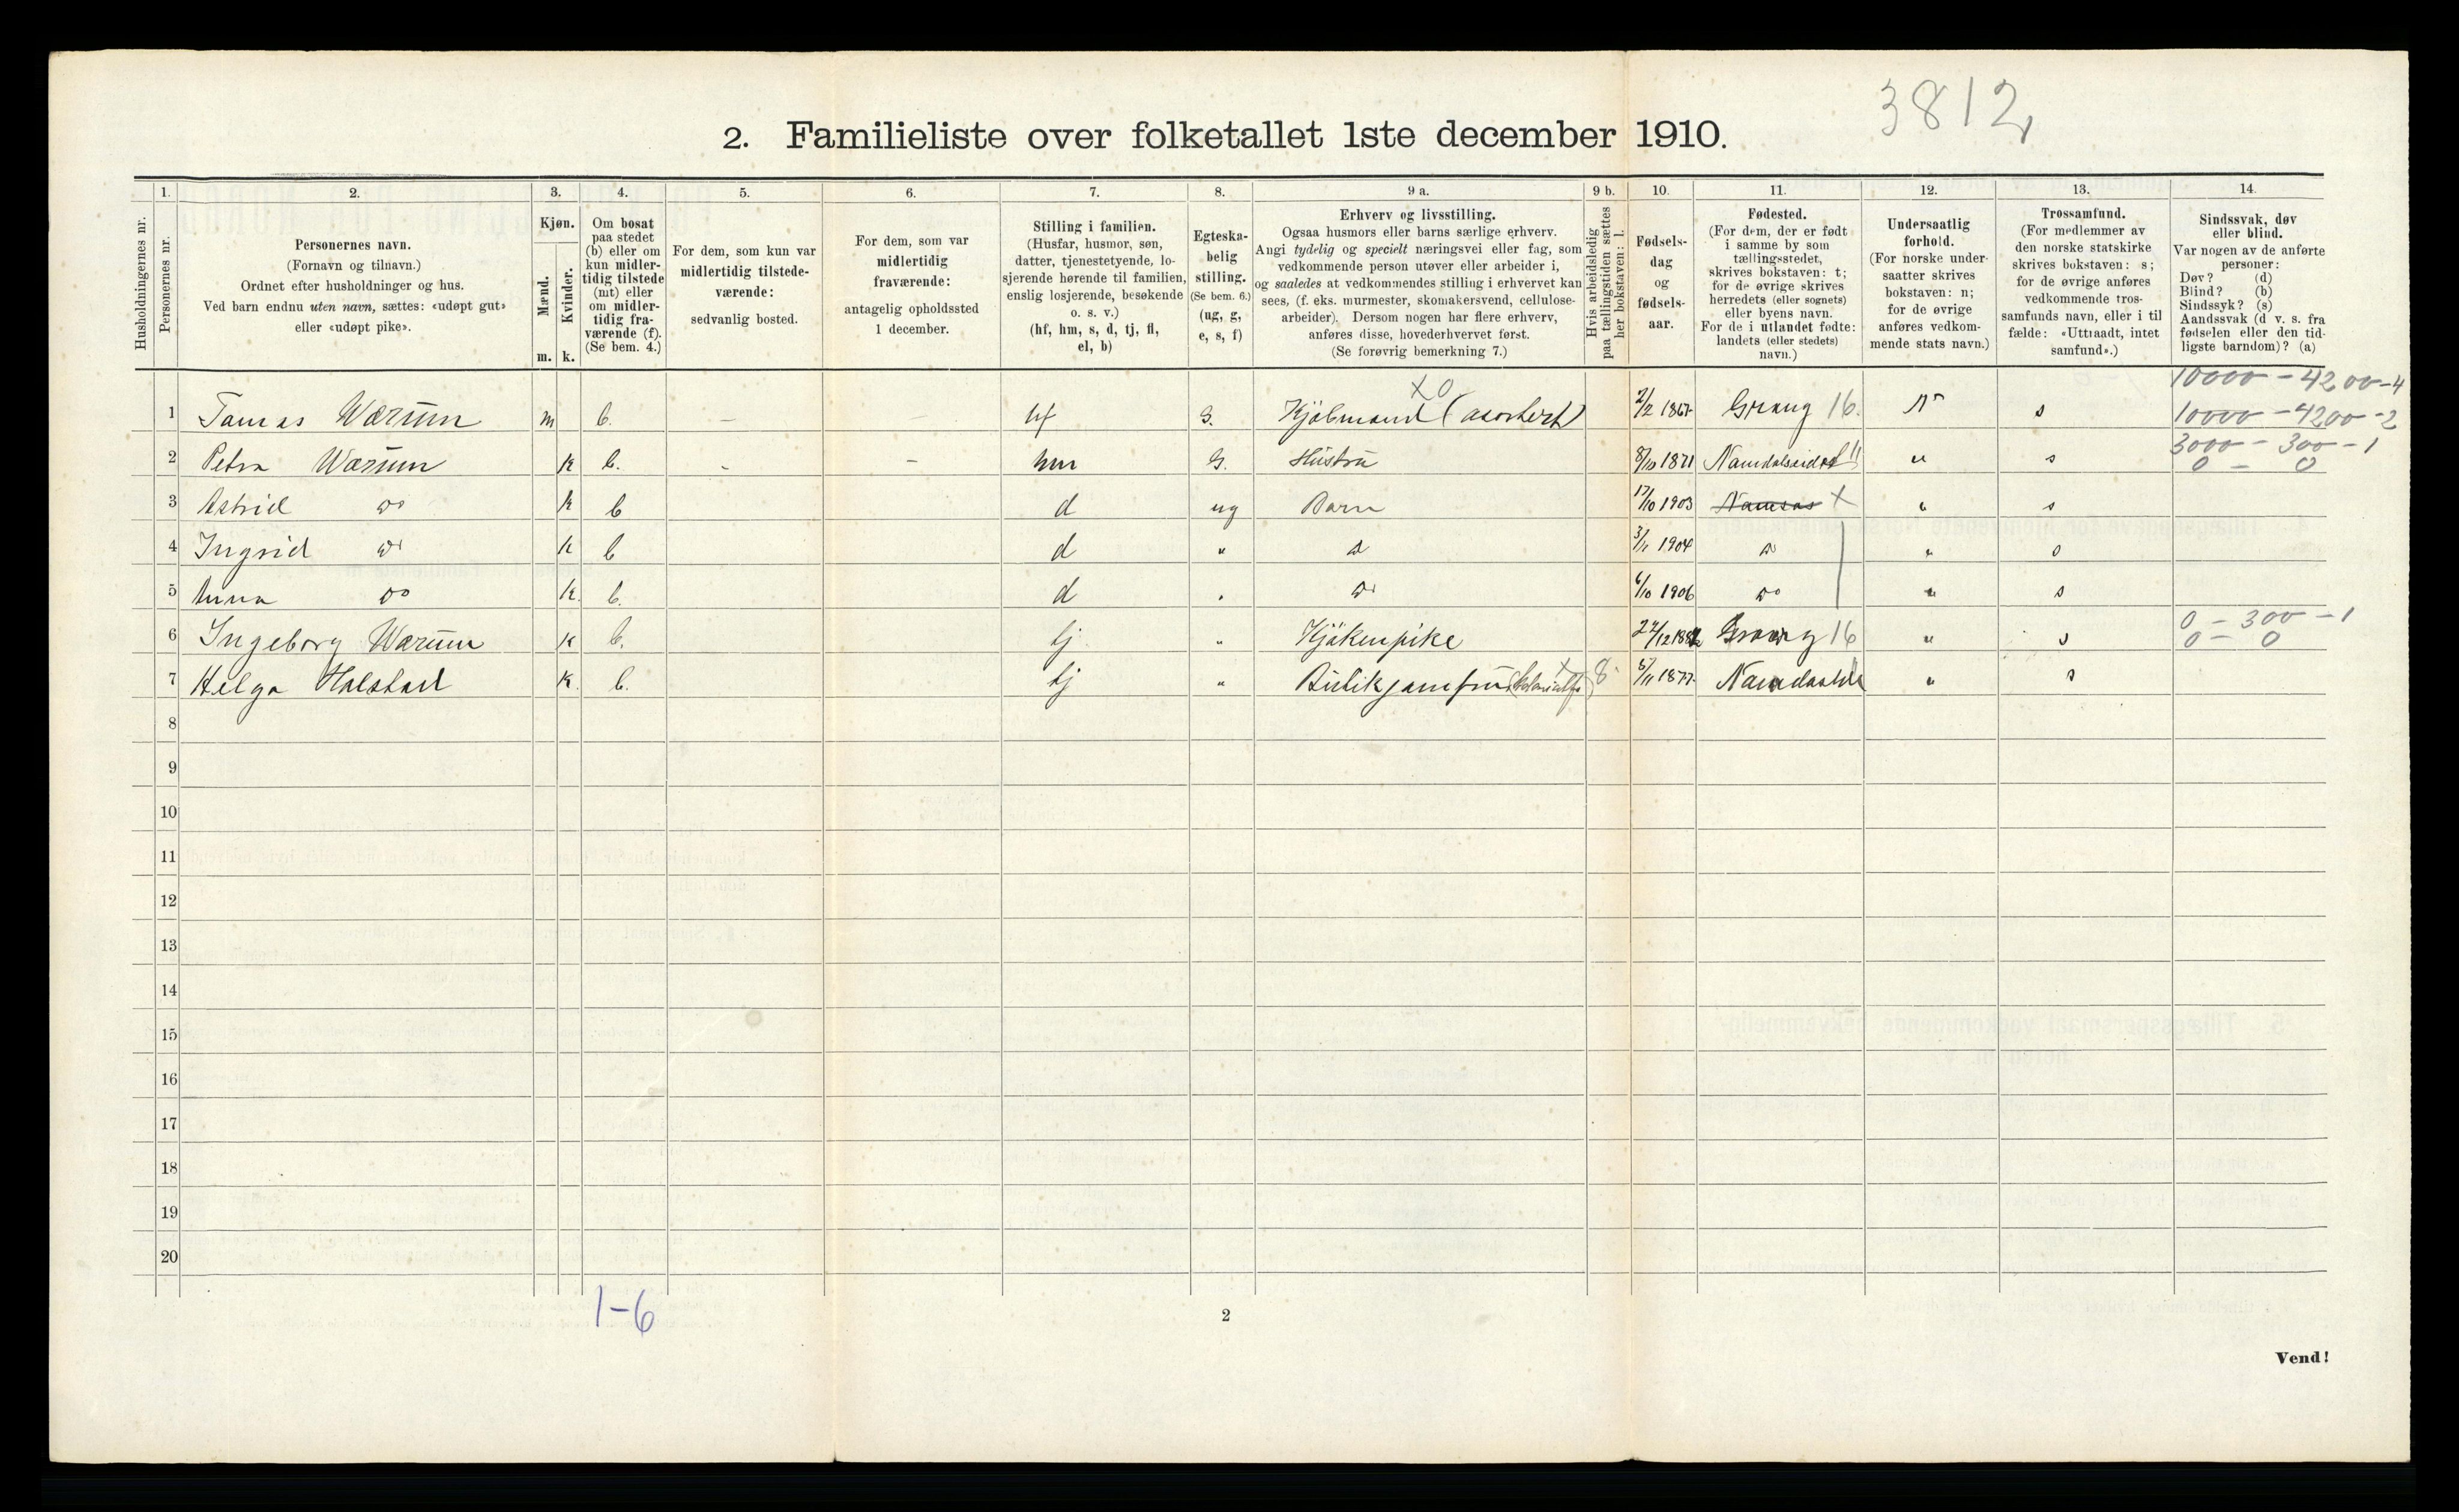 3812
2. Familieliste over folketallet 1ste december 1910.
Husholdningernes nr.
1.
Personernes nr.
2.
Personernes navn.
(Fornavn og tilnavn.)
Ordnet efter husholdninger og hus.
Ved barn endnu uten navn, sættes: «udøpt gut»
eller «udøpt pike».
3.
Kjøn.
Mænd.
Kvinder.
m. k.
4.
Om bosat
paa stedet
(b) eller om
kun midler-
tidig tilstede
(mt) eller
om midler-
tidig fra-
værende (f).
(Se bem. 4.)
5.
For dem, som kun var
midlertidig tilstede-
værende:
sedvanlig bosted.
6.
For dem, som var
midlertidig
fraværende:
antagelig opholdssted
1 december.
7.
Stilling i familien.
(Husfar, husmor, søn,
datter, tjenestetyende, lo-
sjerende hørende til familien,
enslig losjerende, besøkende
o. s. v.)
(hf, hm, s, d, tj, fl,
el, b)
8.
Egteska-
belig
stilling.
(Se bem. 6.)
(ug, g,
e, s, f)
9 a.
Erhverv og livsstilling.
Ogsaa husmors eller barns særlige erhverv.
Angi tydelig og specielt næringsvei eller fag, som
vedkommende person utøver eller arbeider i,
og saaledes at vedkommendes stilling i erhvervet kan
sees, (f. eks. murmester, skomakersvend, cellulose-
arbeider). Dersom nogen har flere erhverv,
anføres disse, hovederhvervet først.
(Se forøvrig bemerkning 7.)
9 b.
Hvis arbeidsledig
paa tællingstiden sættes
her bokstaven: l.
10.
Fødsels-
dag
og
fødsels-
aar.
11.
Fødested.
(For dem, der er født
i samme by som
tællingsstedet,
skrives bokstaven: t;
for de øvrige skrives
herredets (eller sognets)
eller byens navn.
For de i utlandet fødte:
landets (eller stedets)
navn.)
12.
Undersaatlig
forhold.
(For norske under-
saatter skrives
bokstaven: n;
for de øvrige
anføres vedkom-
mende stats navn.)
13.
Trossamfund.
(For medlemmer av
den norske statskirke
skrives bokstaven: s;
for de øvrige anføres
vedkommende tros-
samfunds navn, eller i til
fælde: «Uttraadt, intet
samfund».)
14.
Sindssvak, døv
eller blind.
Var nogen av de anførte
personer:
Døv? (d)
Blind? (b)
Sindssyk? (s)
Aandssvak (d. v. s. fra
fødselen eller den tid-
ligste barndom)? (a)
XO 10000 - 4200 - 4
1 Tomas Wærum m b. – hf G. Kjøbmand (asorkert) 2/2 1867 Grong 16. N s 10000 - 4200 - 2
3000 - 300 - 1
2 Petra Wærum k b. - – hm G. Hüstru 8/10 1871 Namdalseidet 11 " s 0 - 0
3 Astrid do k b d ug Barn 17/10 1903 Namsos X " s
4 Ingrid do k b d " do 3/11 1904 do " s
5 Anna do k. b. d " do 6/10 1906 do " s
0 - 300 - 1
6 Ingeborg Wærum k b. tj " Kjøkenpike 24/12 Grong 16 " s 0 - 0
7 Helga Halstad k. b. tj " Butikjomfru X 8 6/11 1877 " s
8
9
10
11
12
13
14
15
16
17
18
19
20
1-6
2
Vend!